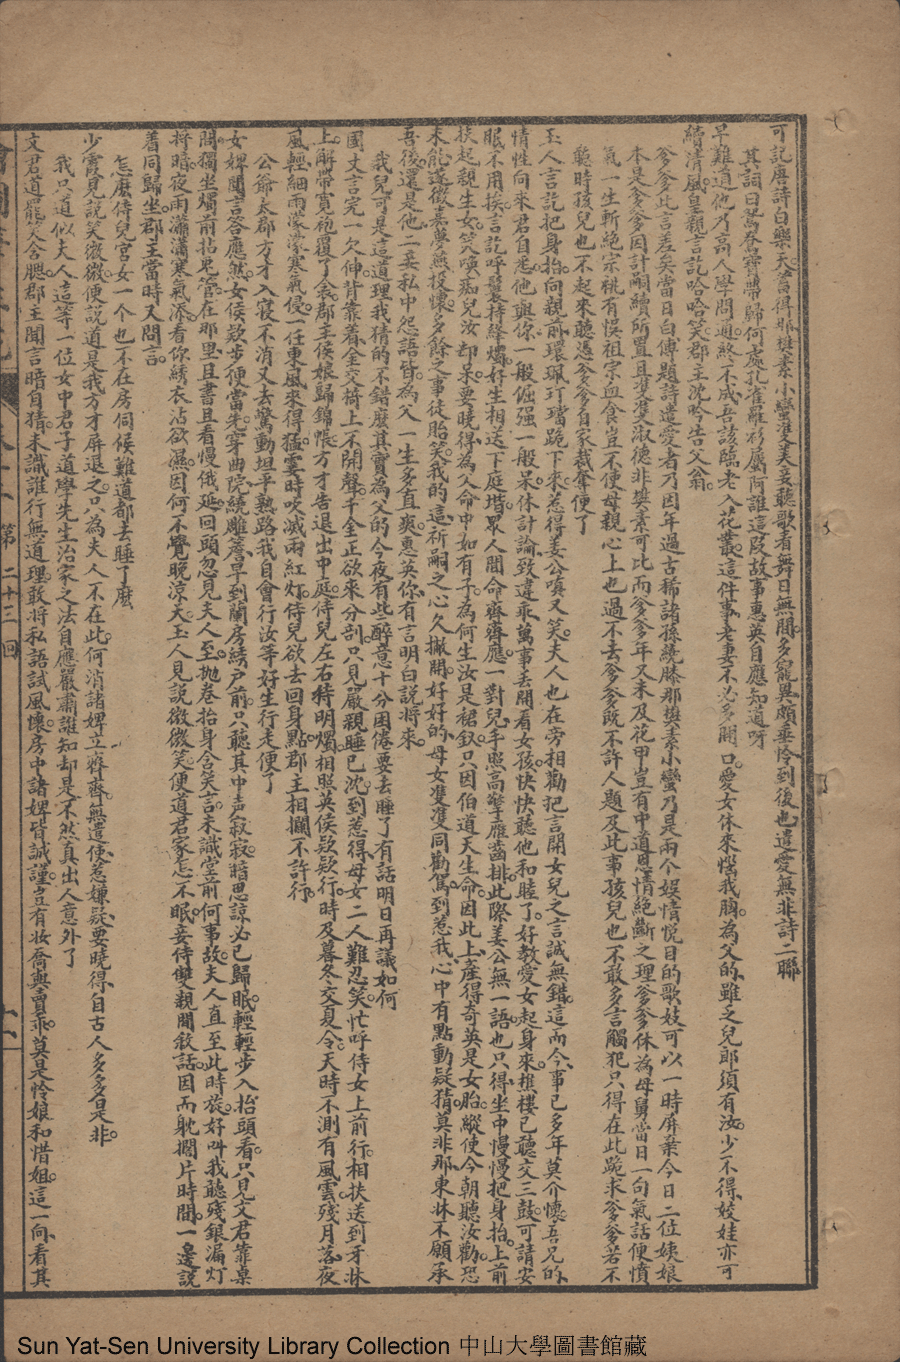 可記唐詩白樂天當得那樊素小蠻雙美妾聽歌看舞日無閒多寵異頗垂怜到後也遣愛無非詩二聯
其詞曰駡春寶帶歸何處孔雀羅衫屬阿誰這段故事惠英自應知道呀
早難道他乃高人學問通終不成吾該臨老入花叢這件事老妻不必多開口愛女休來惱我胸為父的雖乏兒郎須有汝少不得姣娃亦可
續清風皇親言訖哈哈笑郡主沈吟告父翁
爹爹此言差矣當日白傅題詩遣愛者乃因年過古稀諸孫繞膝那樊素小蠻乃是兩個娛情悅目的歌妓可以一時屏棄今日二位姨娘
本是爹爹因計嗣續所置且雙雙淑德非樊素可比而爹爹年又未及花甲豈有中道恩情絕斷之理爹爹休為母舅當日一句氣話便憤
氣一生斬絕宗祧有悞祖宗血食豈不使母親心上也過不去爹爹既不許人題及此事孩兒也不敢多言觸犯只得在此跪求爹爹若不
聽時孩兒也不起來聽憑爹爹自家裁奪便了
玉人言訖把身抬向親前環珮玎璫跪下來惹得姜公嗔又笑夫人也在旁相勸把言開女兒之言誠無錯這而今事已多年莫介懷吾兄的
情性向來君自悉他與你一般倔强一般呆休計論致違乖萬事丟開看女孩快快聽他和睦了好教愛女起身來樵樓已聽交三鼓可請安
眠不用挨言訖呼鬟持絳燭好生相送下庭堦眾人聞命齊齊應一對兒手照高擎雁齒排此際姜公無一語也只得坐中慢慢把身抬上前
扶起親生女笑喚痴兒汝却呆要曉得為父命中如有子為何生汝是裙釵只因伯道天生命因此上產得奇英是女胎縱使今朝聽汝勸恐
未能遂徵嘉夢燕投懷多餘之事徒貽笑我的這祈嗣之心久撇開好好的母女雙雙同勸駡到惹我心中有點動疑猜莫非那東牀不願承
吾後還是他二妾私中怨語皆為父一生多直爽惠英你有言明白說將來
我兒可是這道理我猜的不錯麼其實為父的今夜有些醉意十分困倦要去睡了有話明日再議如何
國丈言完一欠伸背靠着金交椅上不開聲千金正欲來分剖只見嚴親睡已沈到惹得母女二人難忍笑忙呼侍女上前行相扶送到牙牀
上解帶寬袍覆了衾郡主侯娘歸錦帳方才告退出中庭侍兒左右持明燭相照英侯欵欵行時及暮冬交夏令天時不測有風雲殘月落夜
風輕細雨濛濛寒氣侵一任東風來得猛霎時吹滅兩紅灯侍兒欲去回身點郡主相攔不許行
公爺太郡方才入寢不消又去驚動坦平熟路我自會行汝等好生行走便了
女婢聞言答應然女侯欵步便當先穿曲院繞雕簷早到蘭房綉户前只聽其中声寂寂暗思諒必已歸眠輕輕步入抬頭看只見文君靠桌
間獨坐燭前拈兎管在那里且書且看慢俄延回頭忽見夫人至拋卷抬身含笑言未識堂前何事故夫人直至此時旋好叫我聽殘銀漏灯
將暗夜雨瀟瀟寒氣添看你綉衣沾欲濕因何不覺晚涼天玉人見說微微笑便道君家怎不眠妾侍雙親閒敘話因而躭擱片時間一邊說
着同歸坐郡主當時又問言
怎麼侍兒宮女一個也不在房伺候難道都去睡了麼
少霞見說笑微微便說道是我方才屏退之只為夫人不在此何消諸婢立齊齊無遣使惹嫌疑要曉得自古人多多是非
我只道似夫人這等一位女中君子道學先生治家之法自應嚴肅誰知却是不然真出人意外了
文君道罷笑含腮郡主聞言暗自猜未識誰行無道理敢將私語試風懷房中諸婢皆誠謹豈有妝喬與賣乖莫是怜娘和惜姐這一向看其
第二十三回
Sun Yat-Sen University Library Collection 中山大學圖書館藏